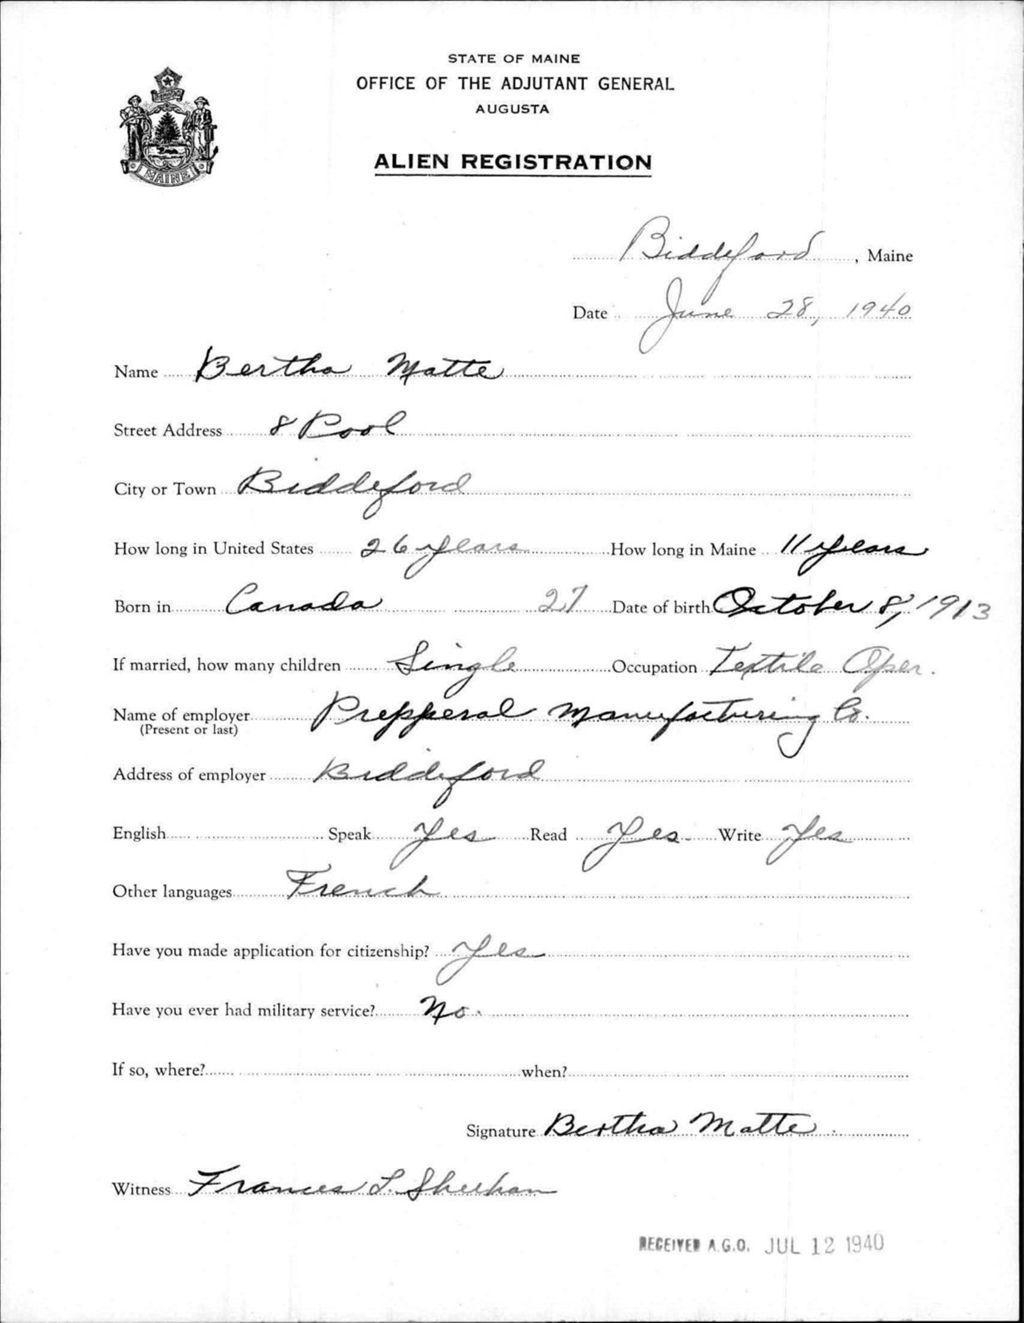 STATE OF MAINE
OFFICE OF THE ADJUTANT GENERAL
AUGUSTA
ALIEN REGISTRATION
MAINE
Biddeford, Maine
Date June 28, 1940
Name Bertha Matte
Street Address 8 Pool
City or Town Biddeford
How long in United States 26 years How long in Maine 11 years
Born in Canada 27 Date of birth October 8, 1913
If married, how many children Single Occupation Textile Oper.
Name of employer Prepperal Manufacturing Co.
(Present or last)
Address of employer Biddeford
English Speak Yes Read Yes Write Yes
Other languages French
Have you made application for citizenship? Yes
Have you ever had military service? No.
If so, where? when?
Signature Bertha Matte
Witness Frances L. Sheehan
RECEIVED A.G.O. JUL 12 1940